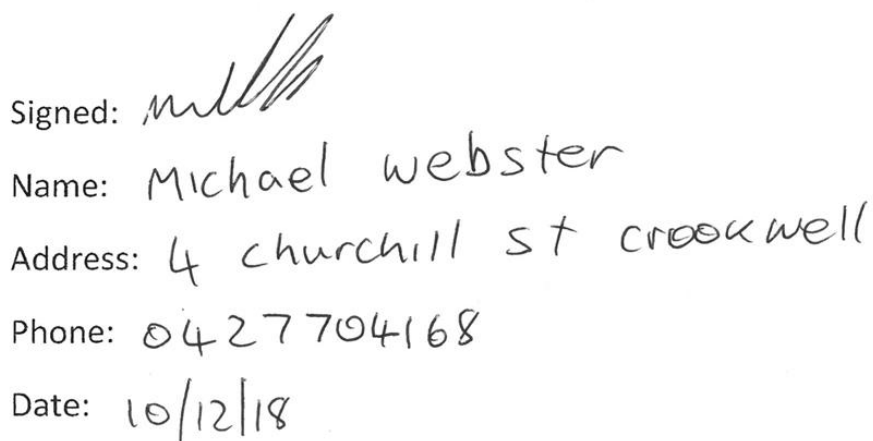 Signed:
Name: Michael Webster
Address: 4 churchill st crookwell
Phone: 0427704168
Date: 10/12/18